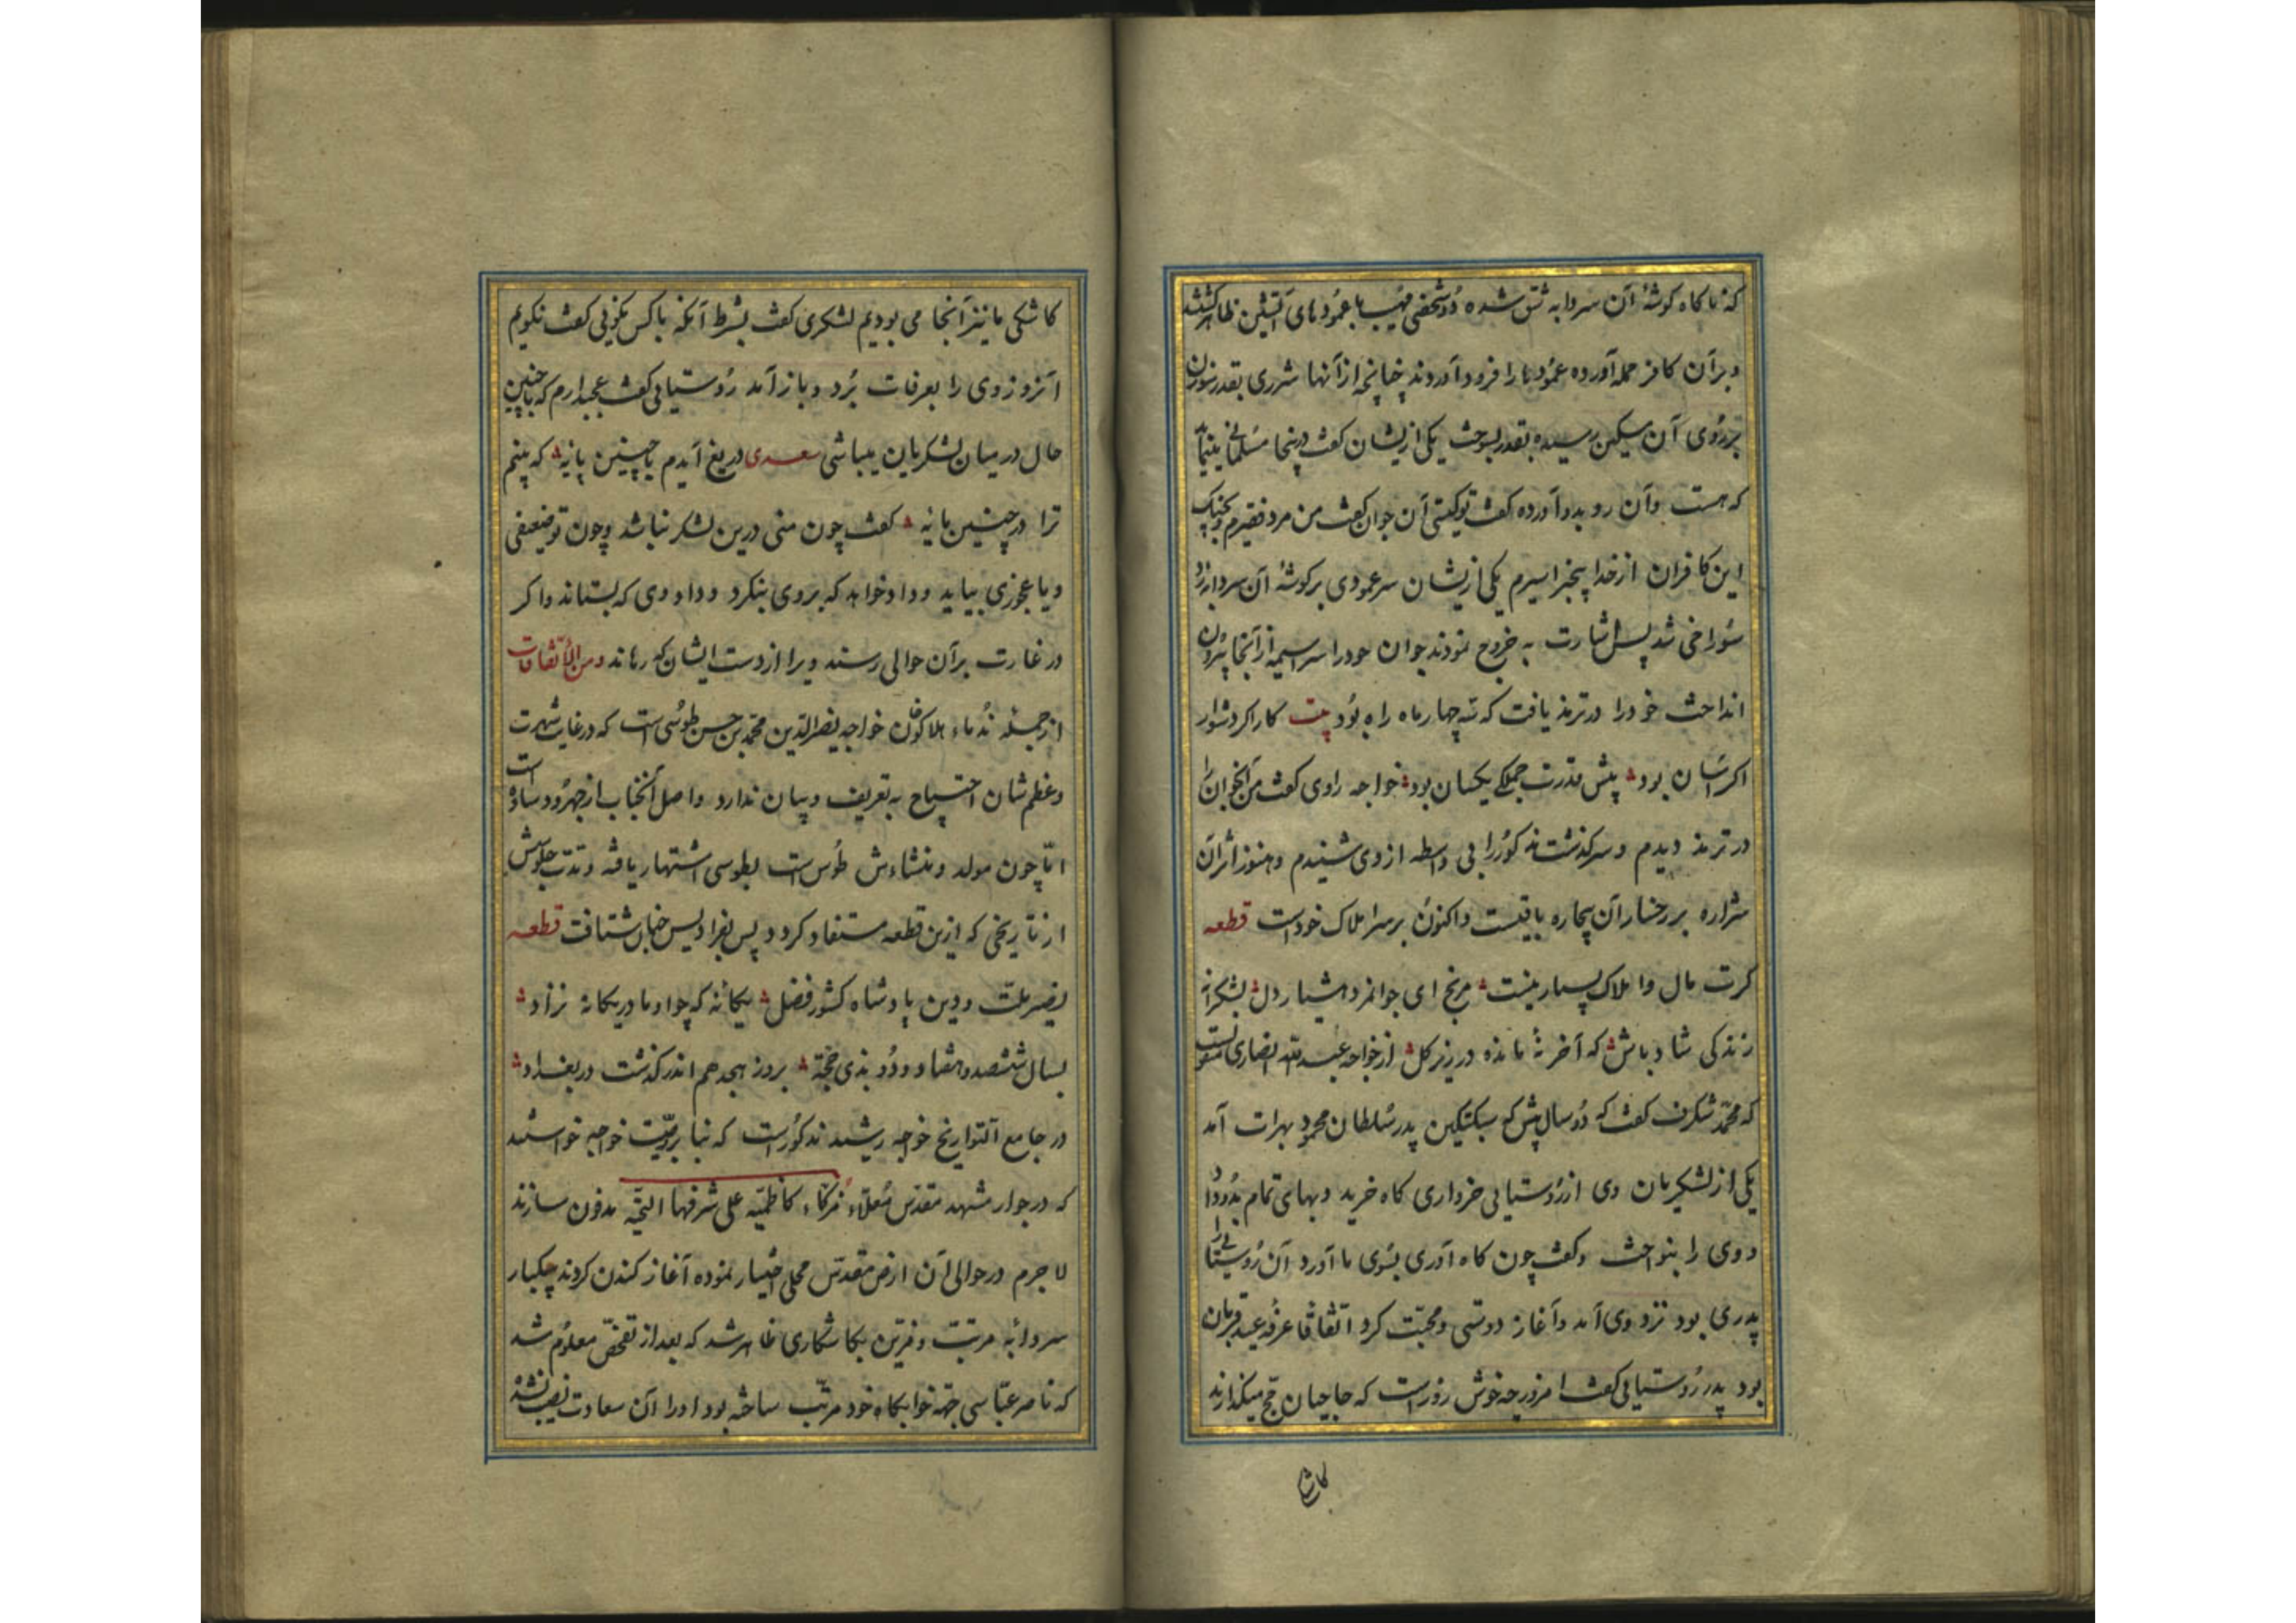 که ناکاه کوشهٔ آن سردابه شق شده دو شخص مهیب با عمودهای آتشین ظاهر کشتند
و برآن کافر حمله آورده عمودها را فرود آوردند چنانچه از آنها شرری بقدر سوزن
برروی آن مسکین رسیده بقدر بسوخت یکی ازیشان کفت درینجا مسلمانی
که هست وآن رو بدو آورده کفت تو کیستی آن جوان کفت من مرد فقیرم وبجنک
این کافران از خدا بیخبر اسیرم یکی ازیشان سر عمودی بر کوشهٔ آن سردابه زد
سوراخی شد پس اشارت به خروج نمودند جوان خودرا سراسیمه از آنجا بیرون
انداخت خودرا درترمذ یافت که سه چهار ماه راه بود بیت کار اکر دشوار
اکر آسان بود پیش قدرت جملکی یکسان بود خواجه راوی کفت من آنجوان را
در ترمذ دیدم و سرکذشت مذکور را بی واسطه از وی شنیدم وهنوز اثر آن
شراره بر رخسار آن بیچاره باقیست واکنون برسر املاک خود است قطعه
کرت مال واملاک بسیار نیست مرنج ای جوانمرد هشیار دل بشکرانه
زندکی شاد باش که آخر نهٔ مانده در زیر کل از خواجه عبد الله انصاری منقولست
که محمد شکرف کفت که دو سال پیش که سبکتکین پدر سلطان محمود بهرات آمد
یکی از لشکریان وی از روستایی خرواری کاه خرید وبهای تمام بدو داد
و وی را بنواخت وکفت چون کاه آوری بسوی ما آورد آن روستایی را
پدری بود نزد وی آمد وآغاز دوستی ومحبت کرد اتفاقا عرفه عید قربان
بود پدر روستایی کفت امروز چه خوش روز است که حاجیان حج میکذارند
کاشکی
کاشکی ما نیز آنجا می بودیم لشکری کفت بشرط آنکه باکس نکوئی کفت نکویم
آنروز وی را بعرفات برد و باز آمد روستیایی کفت عجبدارم که باچنین
حال درمیان لشکریان میباشی سعدی دریغ آیدم باچنین پایهٔ که بینم
ترا درچنین مایهٔ کفت چون منی درین لشکر نباشد وچون تو ضعیفی
ویا عجوزی بیاید وداد خواهد که بروی بنکرد وداد وی که بستاند واکر
درغارت برآن حوالی رسند ویرا از دست ایشان که رهاند ومن الاتفاقات
ازجمله ندماء هلاکو خان خواجه نصیرالدین محمد بن حسن طوسی است که درغایت شهرت
وعظم شان احتیاج به تعریف وبیان ندارد واصل آنجناب از جهرود ساوه است
اما چون مولد ومنشاءش طوس است بطوسی اشتهار یافته ومدت جلوسش
از تاریخی که ازین قطعه مستفاد کردد پس بفرادیس جنان شتافت قطعه
نصیر ملت ودین پادشاه کشور فضل یکانهٔ که چو او مادر یکانه نزاد
بسال ششصد وهفتاد ودو بذی حجه بروز هجدهم اندرکذشت دربغداد
در جامع التواریخ خواجه رشید مذکور است که بنا بر وصیت خواجه خواستند
که درجوار مشهد مقدس معلاء مزکاء کاظمیه علی شرفها التحیه مدفون سازند
لاجرم درحوالی آن ارض مقدس محلی اختیار نموده آغاز کندن کردند بیکبار
سردابهٔ مرتب ومزین بکاشکاری ظاهر شد که بعد از تفحص معلوم شد
که ناصر عباسی جهة خوابکاه خود مرتب ساخته بود اورا آن سعادت نصیب نشد